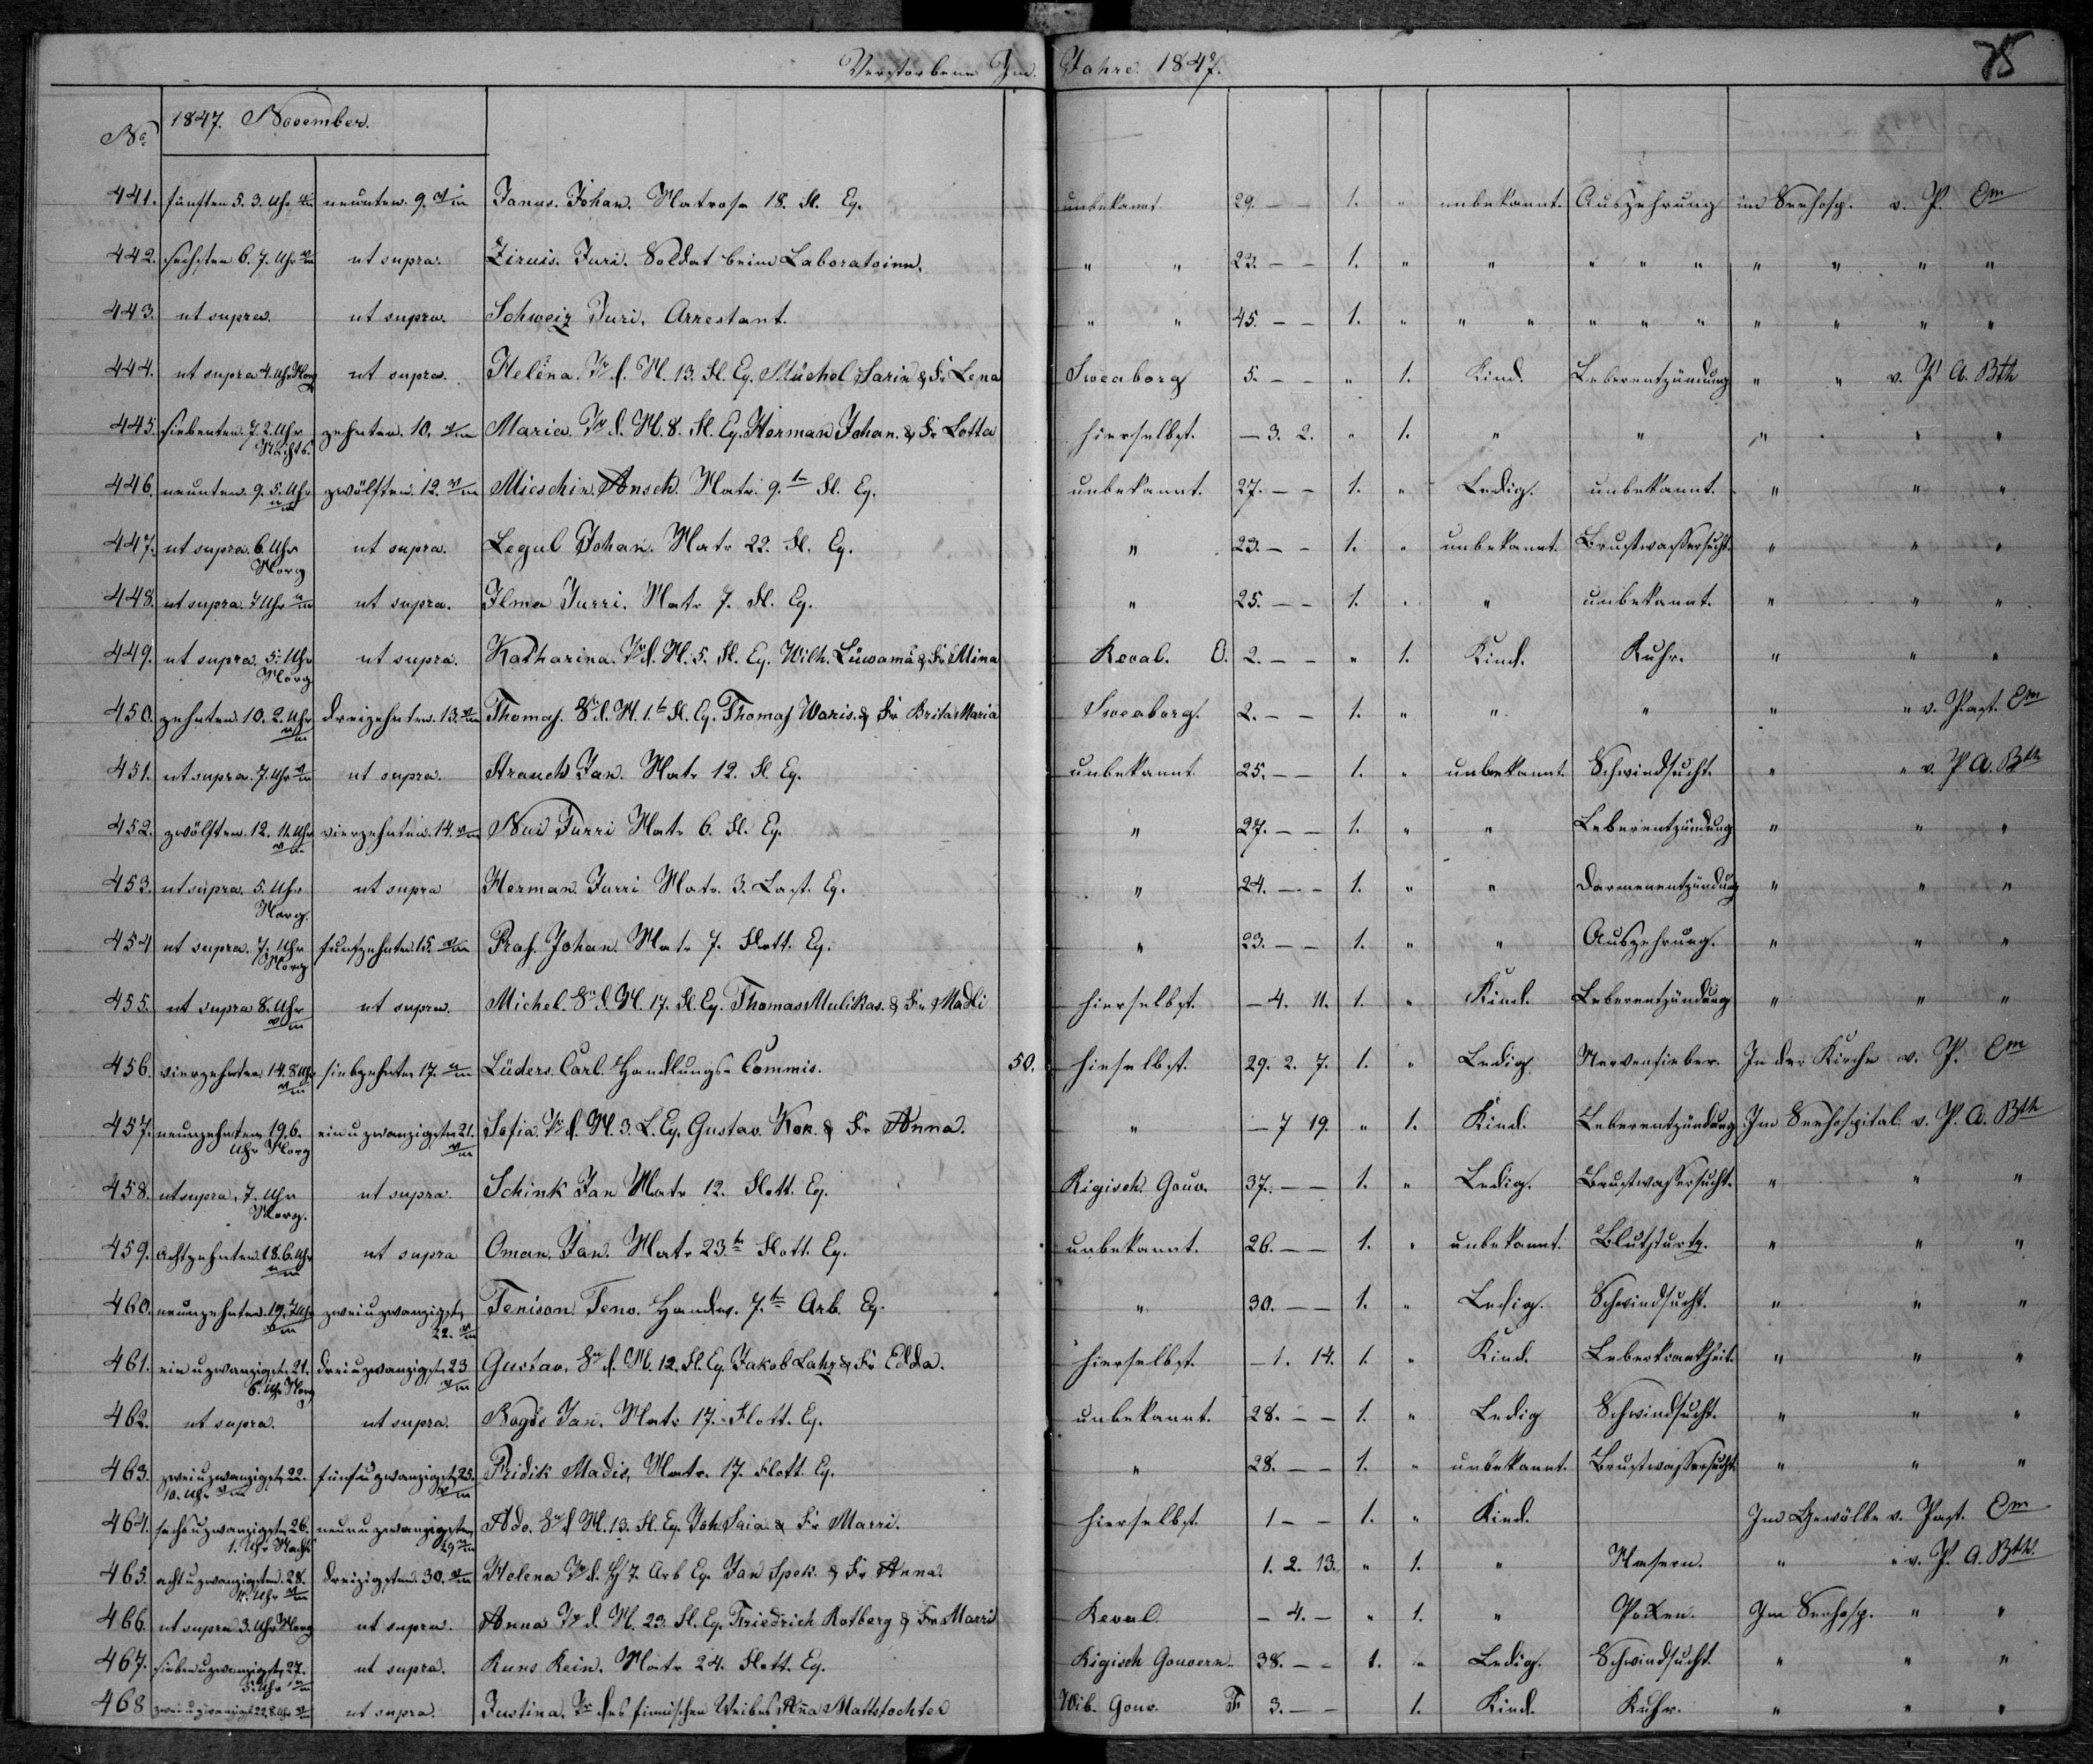 Verstorbene Im Jahre 1847. 75
No 1847. November.
441. fünften 5. 3. Uhr n/m neunten 9. v/m Janus. Johan. Matrose 18. Fl. Eq. unbekannt 29. – – 1. " unbekannt. Auszehrung im Seehosp. v. P. Em
442. sechsten 6. 7. Uhr v/m ut supra. Ziruis. Juri. Soldat beim Laboratoirm. " " 22. – – 1. " " " " " " " " "
443. ut supra. ut supra. Schweiz Juri. Arrestant. " " 45. – – 1. " " " " " " " " " "
444. ut supra 4. Uhr Morg ut supra. Helena. Tr d. M. 13. Fl. Eq. Müchel Sarin & Fr Lena Sweaborg 5. – – " 1. Kind. Leberentzündung " " v. P. A. Bth
445. siebenten. 7. 2. Uhr Nachts. zehnten. 10. v/m Maria. Tr d. M. 8. Fl. Eq. Herman Johan. & Fr Lotta hierselbst. – 3. 2. " 1. " " " " "
446. neunten. 9. 5. Uhr n/m zwölften. 12. v/m Mieschin Ansch. Matr. 9.tn Fl. Eq. unbekannt. 27. – – 1. " Ledig. unbekannt. " " "
447. ut supra. 6. Uhr Morg ut supra. Legul Johan. Matr 22. Fl. Eq. " 23. – – 1. " unbekannt. Brustwassersucht. " " "
448. ut supra. 7 Uhr n/m ut supra. Ilma Jurri. Matr 7. Fl. Eq. " 25. – – 1. " " unbekannt. " " "
449. ut supra. 5. Uhr Morg ut supra. Katharina. Tr d. M. 5. Fl. Eq. Wilh. Lüwamä & Fr Mina Reval. E. 2. – – " 1. Kind. Ruhr. " " "
450. zehnten. 10. 2. Uhr n/m dreizehnten. 13. v/m Thomas. Sn d. M. 1.tn Fl. Eq. Thomas Waris. & Fr Brita Maria Sweaborg. 2. – – 1. " " " " " v. Past. Em
451. ut supra. 7. Uhr v/m ut supra. Strauch Jan. Matr 12. Fl. Eq. unbekannt 25. – – 1. " unbekannt. Schwindsucht. " " v. P A. Bth
452. zwölften. 12. 11. Uhr v/m vierzehnten. 14. v/m Nui Jurri Matr 6. Fl. Eq. " 27. – – 1. " " Leberentzündung " " "
453. ut supra. 5. Uhr Morg. ut supra Herman. Jurri Matr. 3. Last. Eq. " 24. – – 1. " " Darmenentzündung " " "
454 ut supra. 7. Uhr Morg funfzehnten 15. v/m Pras. Johan. Matr 7. Flott. Eq. " 23. – – 1. " " Auszehrung. " " "
455. ut supra 8. Uhr v/m ut supra. Michel. Sn d. M. 17. Fl. Eq. Thomas Mulikas. & Fr Madli hierselbst. – 4. 11. 1. " Kind. Leberentzündung " " "
456. vierzehnten. 14. 8 Uhr v/m siebzehnten 17. n/m Lüders. Carl. Handlungs-Commis. 50. hieselbst. 29. 2. 7. 1. " Ledig. Nervenfieber. In der Kirche v. P. Em
457. neunzehnten 19. 6. Uhr Morg ein u zwanzigsten 21. v/m Sofia. Tr d. M. 3. L. Eq. Gustav. Kok. & Fr Anna. " – 7 19. " 1. Kind. Leberentzündung Im Seehospital v. P. A. Bth
458. ut supra, 7. Uhr Morg. ut supra. Schink Jan Matr 12. Flott. Eq. Rigisch. Gouv. 37. – – 1. " Ledig. Brustwassersucht. " " "
459. Achtzehnten. 18. 6. Uhr n/m ut supra Oman. Jan. Matr 23.tn Flott. Eq. unbekannt. 26. – – 1. " unbekannt. Blutsturtz. " " "
460. neunzehnten. 19. 7. Uhr v/m zwei u zwanzigsten 22. v/m Tenison Teno. Handw. 7.tn Arb. Eq. " 30. – – 1. " Ledig. Schwindsucht. " " "
461. ein u zwanzigst. 21. 6. Uhr Morg drei u zwanzigst. 23 v/m Gustav. Sn d. M. 12. Fl. Eq. Jakob Lahz & Fr Edda. hierselbst. – 1. 14. 1. " Kind. Leberkrankheit. " " "
462. ut supra. ut supra. Nogis Jan. Matr 17. Flott. Eq. unbekannt. 28. – – 1. " Ledig Schwindsucht. " " "
463. zwei u zwanzigst. 22. 10. Uhr v/m fünf u zwanzigst. 25. v/m Pridik Madis, Matr. 17. Flott. Eq. " 28. – – 1. " unbekannt. Brustwassersucht. " " "
464. sechs u zwanzigsten 26. 1. Uhr Nachts neun u zwanzigsten 29 v/m Ado. Sn d M. 13. Fl. Eq. Joh. Saia. & Fr Marri. hierselbst. 1 – – 1. " Kind. Im Gewölbe v. Past. Em
465. acht u zwanzigsten. 28. 11. Uhr v/m dreizigsten. 30. v/m Helena Tr d. H 7. Arb Eq. Jan Spek. & Fr Anna. 1. 2. 13. " 1. " Masern. " " v. P. A. Bth.
466. ut supra 3. Uhr Morg ut supra. Anna Tr d. M. 23. Fl. Eq. Friedrich Rotberg & Fr Marri Reval. – 4. – " 1. " Pocken. Im Seehosp. " "
467. sieben u zwanzigst. 27. 5. Uhr n/m ut supra. Kuns Rein. Matr 24. Flott. Eq. Rigisch Gouvern. 38. – – 1. " Ledig. Schwindsucht. " " "
468 zwei u zwanzigst 22. 8. Uhr v/m ut supra. Justina. Tr des finnischen Weibes Aña Mattstochter Wib. Gouv. F. 3. – – 1. Kind. Ruhr. " " "